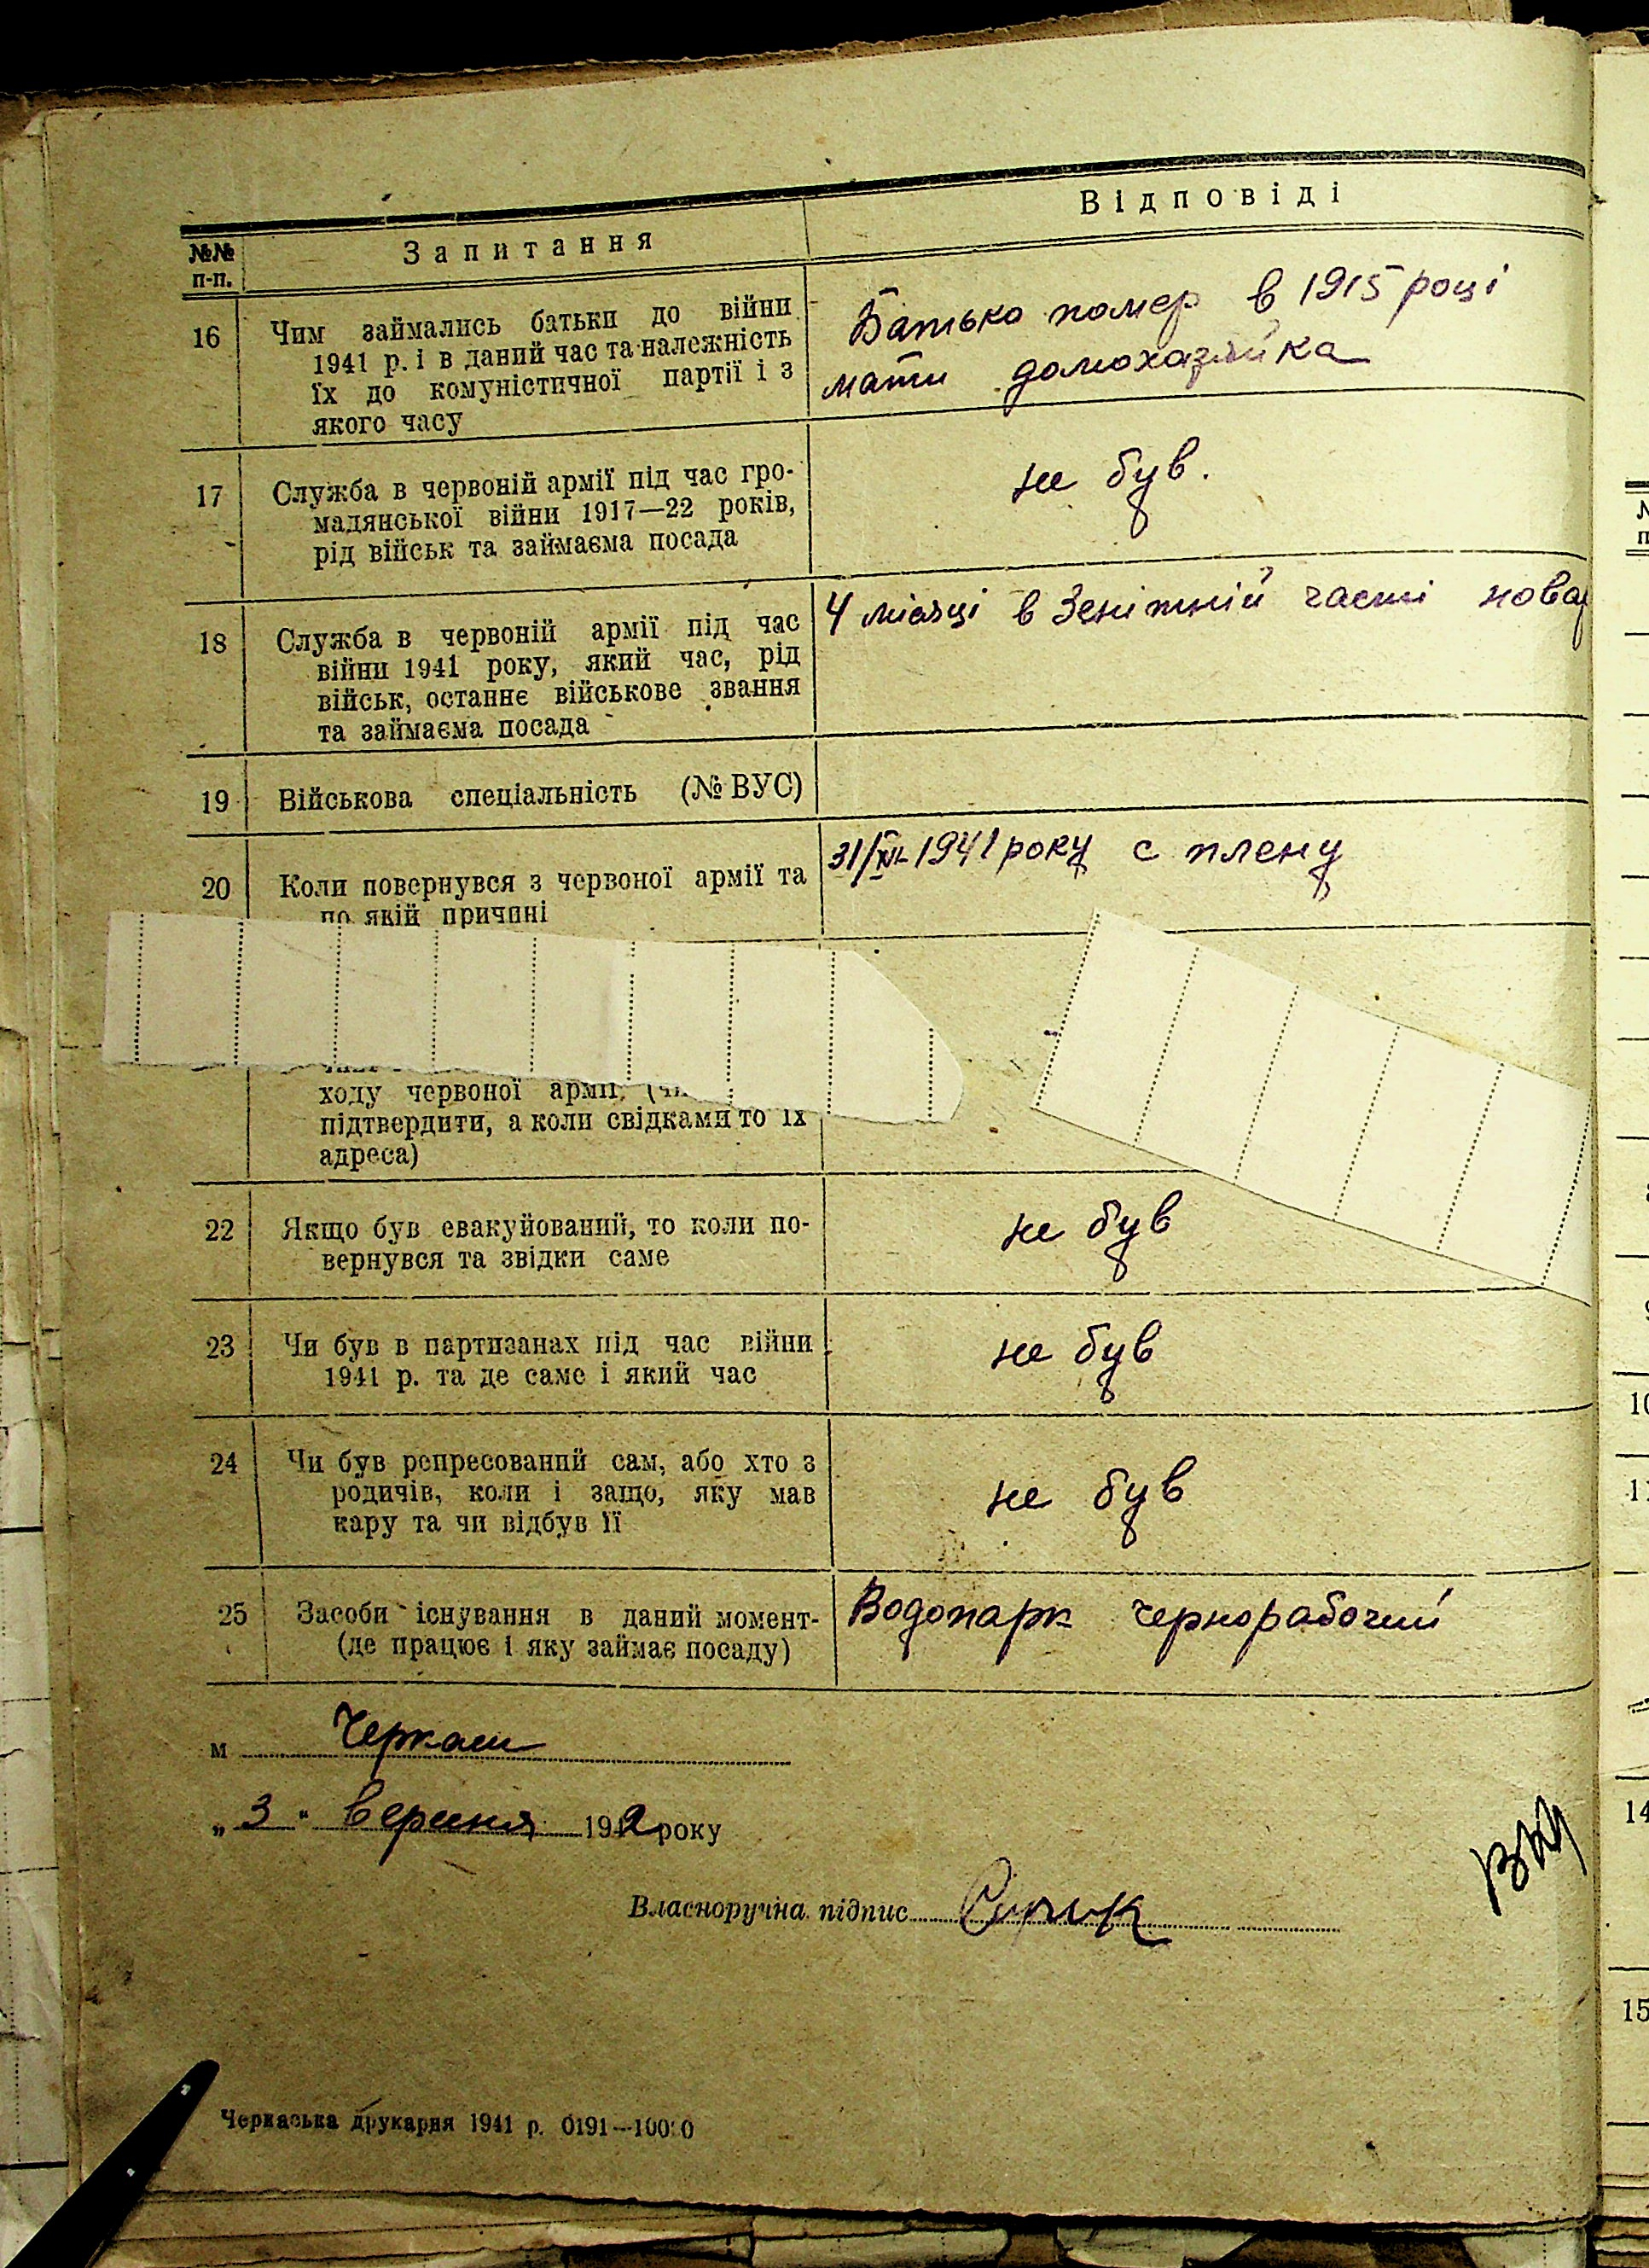 Відповіді
№№ Запитання
п-п.
16 Чим займались батьки до війни
1941 р. і в даний час та належність
їх до комуністичної партії і з
якого часу
Батько помер в 1915 році
мати домохазяйка
17 Служба в червоній армії під час гро-
мадянської війни 1917—22 років,
рід військ та займаєма посада
не був.
18 Служба в червоній армії під час
війни 1941 року, який час, рід
військ, останнє військове звання
та займаєма посада
4 місяці в Зенітній часті
19 Військова спеціальність (№ ВУС)
20 Коли повернувся з червоної армії та
по якій причині
31/XII 1941 року с плену
ходу червоної армії,
підтвердити, а коли свідками то їх
адреса)
22 Якщо був евакуйований, то коли по-
вернувся та звідки саме
не був
23 Чи був в партизанах під час війни
1941 р. та де саме і який час
не був
24 Чи був репресований сам, або хто з
родичів, коли і защо, яку мав
кару та чи відбув її
не був
25 Засоби існування в даний момент-
(де працює і яку займає посаду)
Водопарк чернорабочий
м Черкаси
„ 3 " вересня 1942 року
Власноручна підпис
Черкаська друкарня 1941 р. 0191—10000
10
14
15